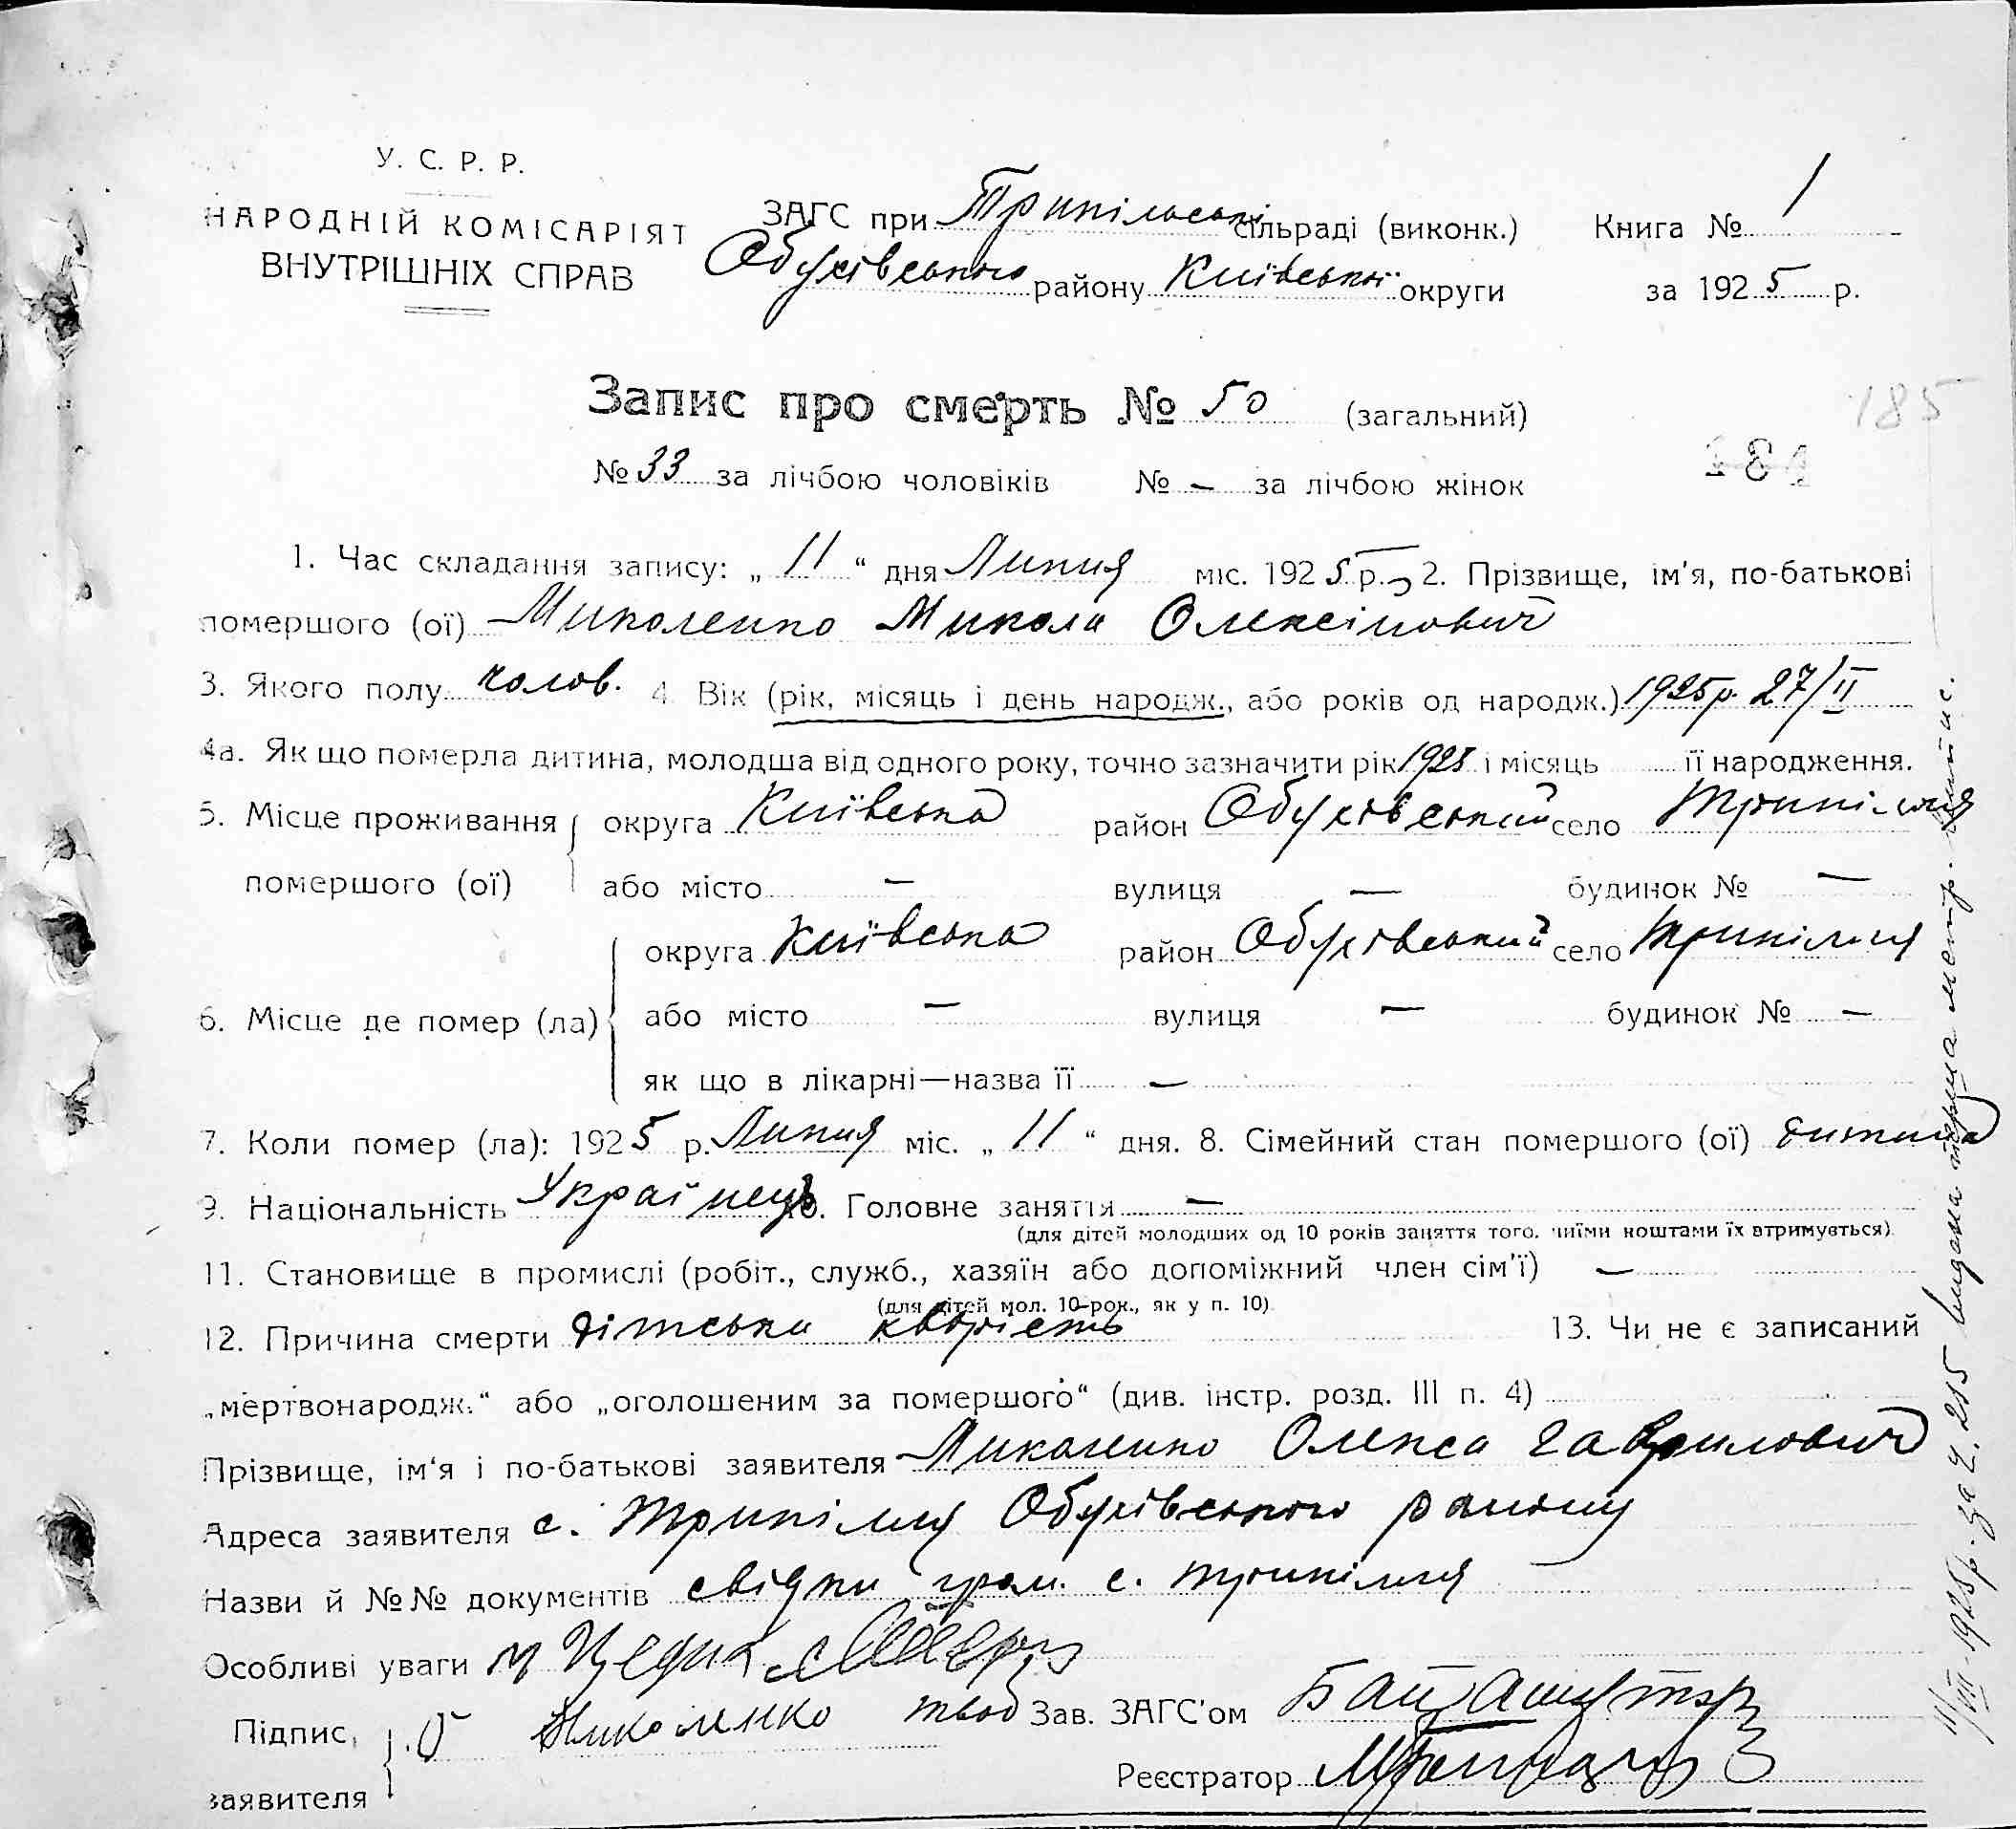 У. С. Р. Р.
НАРОДНІЙ КОМІСАРІЯТ
ВНУТРІШНІХ СПРАВ
ЗАГС при Трипільські сільраді (виконк.)
Обухівського району Київської округи
Книга № 1
за 1925 р.
Запис про смерть № 50 (загальний)
185
№ 33 за лічбою чоловіків № — за лічбою жінок
1. Час складання запису: „ 11 “ дня Липня міс. 1925 р. 2. Прізвище, ім'я, по-батькові
помершого (ої) Миколенко Микола Олексійович
3. Якого полу чолов. 4. Вік (рік, місяць і день народж., або років од народж.) 1925р. 27/II
4а. Як що померла дитина, молодша від одного року, точно зазначити рік 1925 і місяць її народження.
5. Місце проживання округа Київська район Обухівський село Трипілля
помершого (ої) або місто — вулиця — будинок № —
округа Київська район Обухівський село Трипілля
6. Місце де помер (ла) або місто — вулиця — будинок № —
як що в лікарні—назва її —
7. Коли помер (ла): 1925 р. Липня міс. „ 11 “ дня. 8. Сімейний стан помершого (ої) дитина
9. Національність Українець 10. Головне заняття —
(для дітей молодших од 10 років заняття того, чиїми коштами їх втримується)
11. Становище в промислі (робіт., служб., хазяїн або допоміжний член сім'ї) —
(для дітей мол. 10-рок., як у п. 10)
12. Причина смерти дітська хворість 13. Чи не є записаний
„мертвонародж.“ або „оголошеним за помершого“ (див. інстр. розд. III п. 4)
Прізвище, ім'я і по-батькові заявителя Миколенко Олекса Гаврилович
Адреса заявителя с. Трипілля Обухівського району
Назви й №№ документів свідки гром. с. Трипілля
Особливі уваги
Підпис, заявителя О Миколенко
Зав. ЗАГС'ом
Реєстратор
11/VII-1925р. за Ч. 215 видана перша метр. виписс.